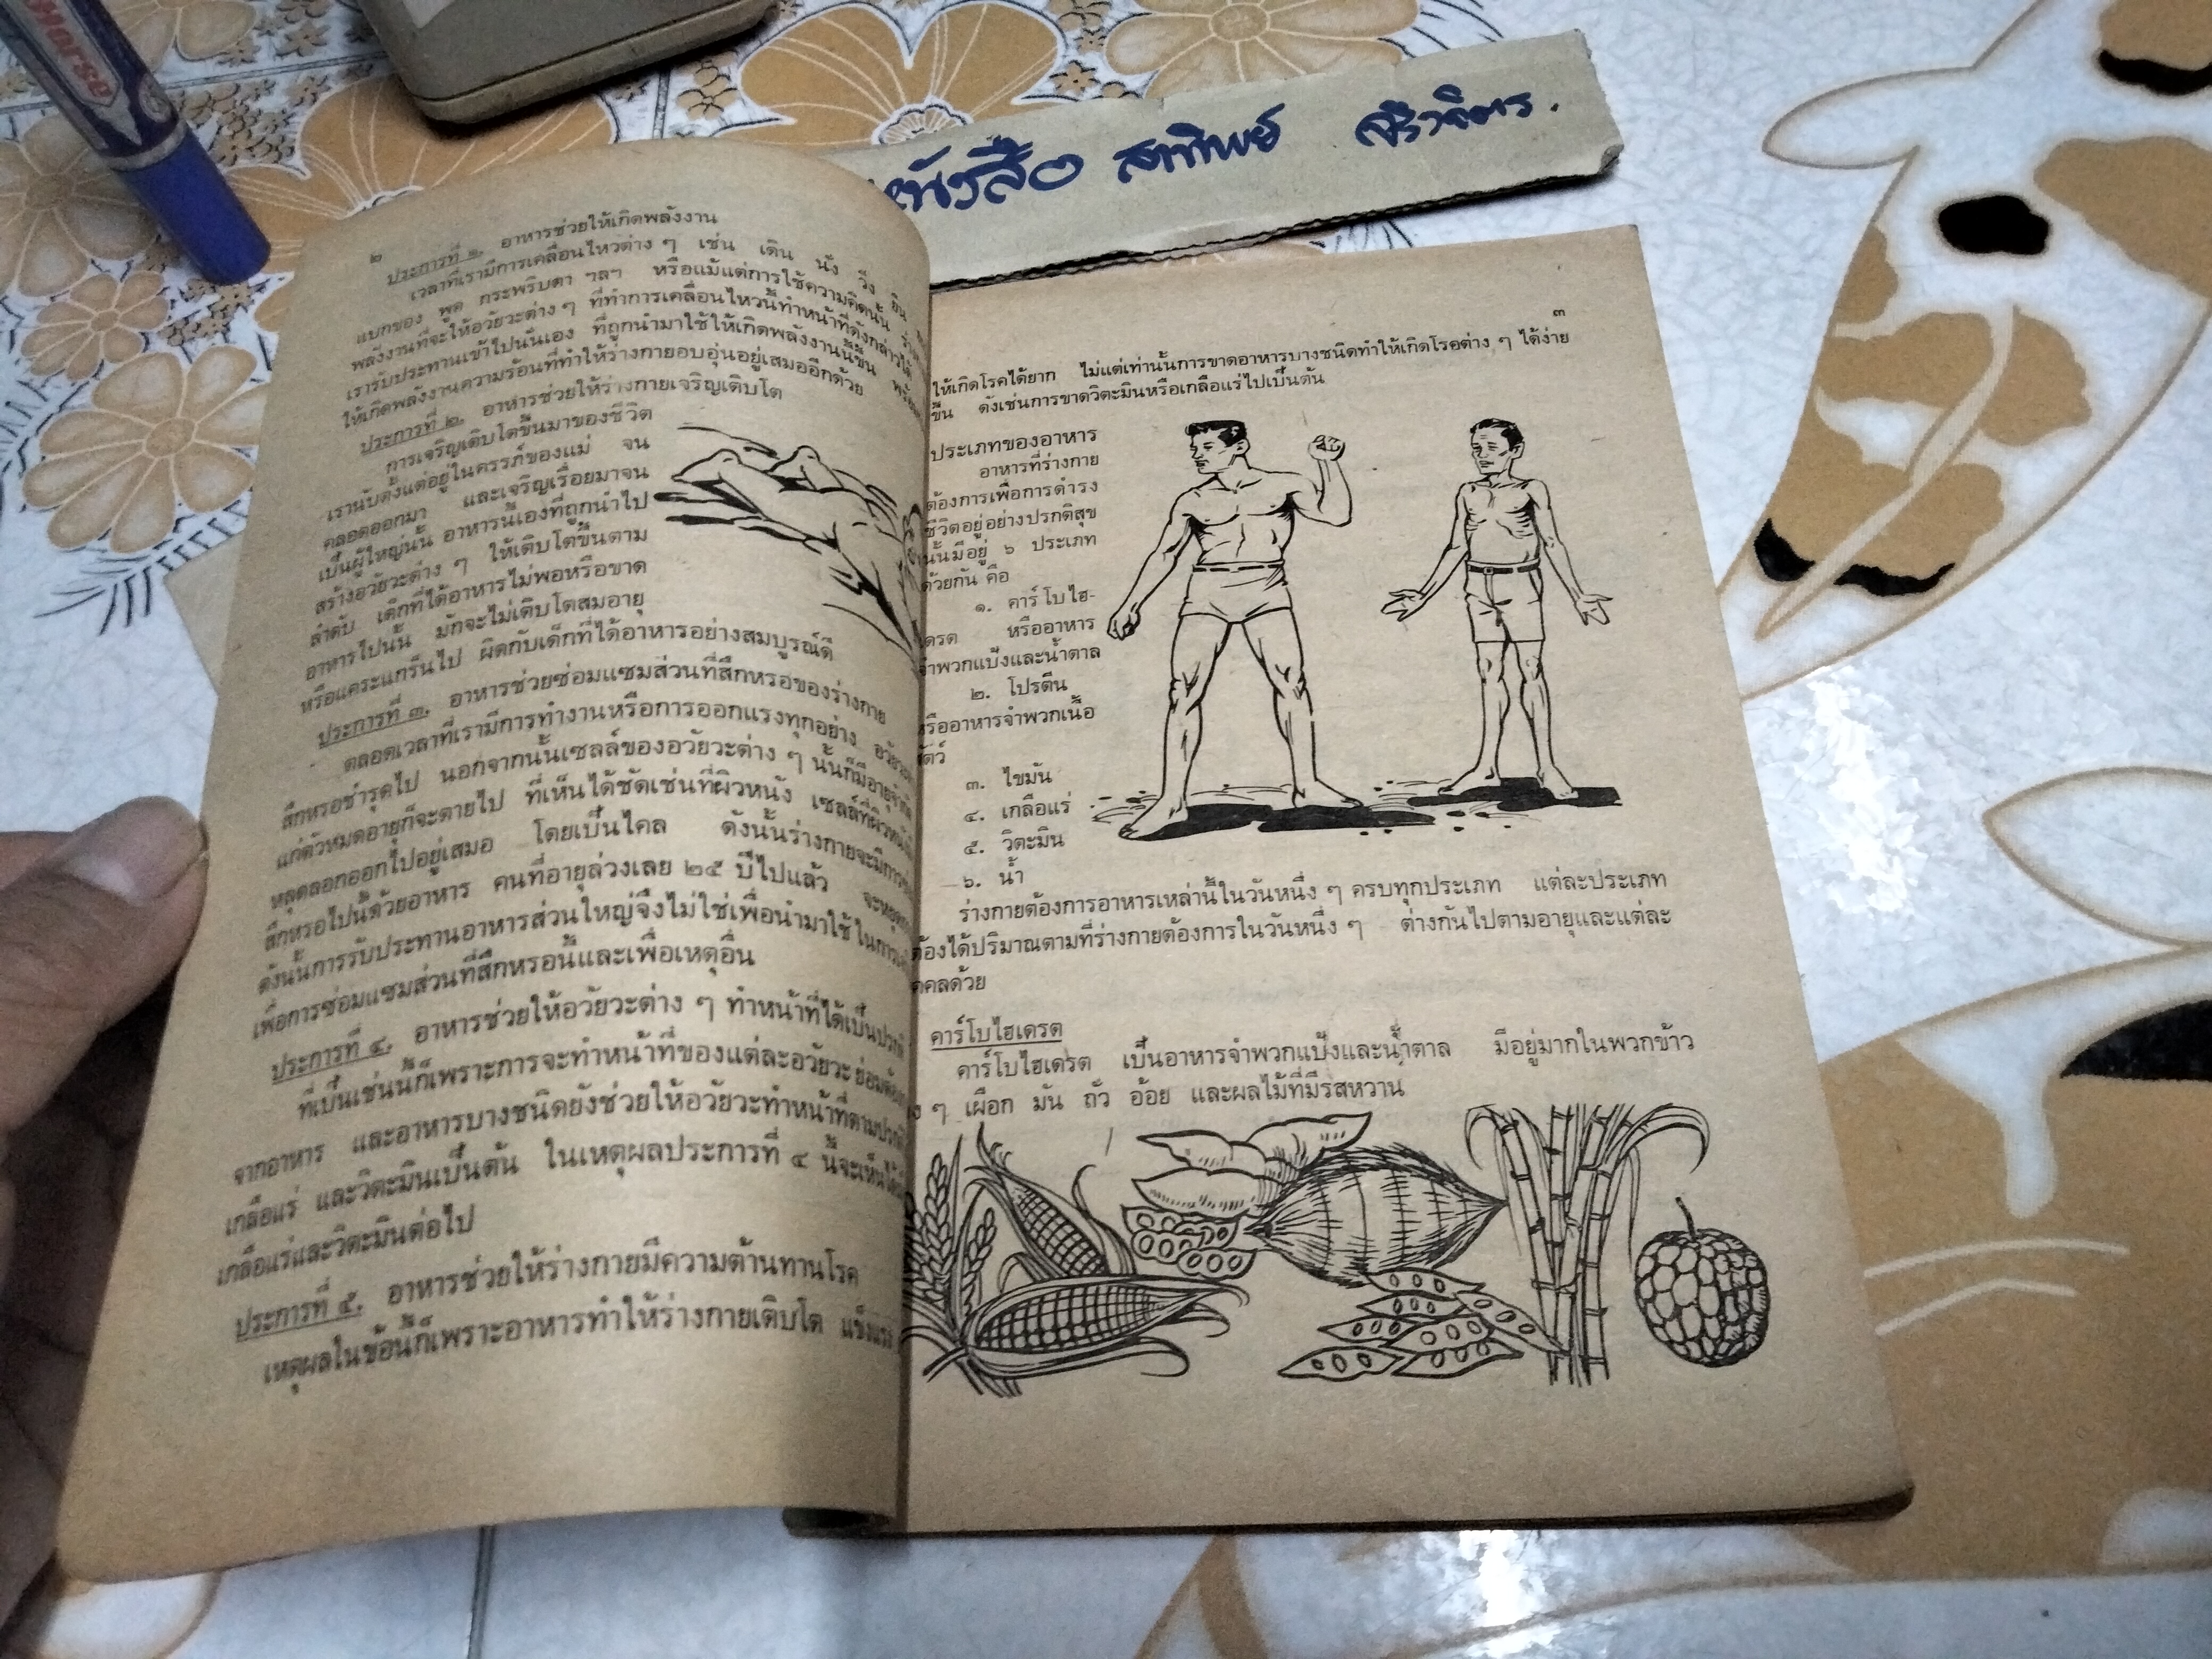 Horse
หนังสือ สภาทิพย์
๒
ประการที่ ๑. อาหารช่วยให้เกิดพลังงาน
เวลาที่เรามีการเคลื่อนไหวต่าง ๆ เช่น เดิน นั่ง วิ่ง ยืน
แบกของ พูด กระพริบตา ฯลฯ หรือแม้แต่การใช้ความคิดนั้น
พลังงานที่จะให้อวัยวะต่าง ๆ ที่ทำการเคลื่อนไหวนี้ทำหน้าที่ดังกล่าวได้
เรารับประทานเข้าไปนั่นเอง ที่ถูกนำมาใช้ให้เกิดพลังงานนี้ขึ้น
ให้เกิดพลังงานความร้อนที่ทำให้ร่างกายอบอุ่นอยู่เสมออีกด้วย
ประการที่ ๒. อาหารช่วยให้ร่างกายเจริญเติบโต
การเจริญเติบโตขึ้นมาของชีวิต
เรานับตั้งแต่อยู่ในครรภ์ของแม่ จน
คลอดออกมา และเจริญเรื่อยมาจน
เป็นผู้ใหญ่นั้น อาหารนี้เองที่ถูกนำไป
สร้างอวัยวะต่าง ๆ ให้เติบโตขึ้นตาม
ลำดับ เด็กที่ได้อาหารไม่พอหรือขาด
อาหารไปนั้น มักจะไม่เติบโตสมอายุ
หรือแคระแกร็นไป ผิดกับเด็กที่ได้อาหารอย่างสมบูรณ์ดี
ประการที่ ๓. อาหารช่วยซ่อมแซมส่วนที่สึกหรอของร่างกาย
ตลอดเวลาที่เรามีการทำงานหรือการออกแรงทุกอย่าง
สึกหรอชำรุดไป นอกจากนั้นเซลล์ของอวัยวะต่าง ๆ นั้นก็มีอายุจำกัด
แก่ตัวหมดอายุก็จะตายไป ที่เห็นได้ชัดเช่นที่ผิวหนัง
หลุดลอกออกไปอยู่เสมอ โดยเป็นไคล ดังนั้นร่างกายจะมีการ
สึกหรอไปนี้ด้วยอาหาร คนที่อายุล่วงเลย ๒๕ ปีไปแล้ว
ดังนั้นการรับประทานอาหารส่วนใหญ่จึงไม่ใช่เพื่อนำมาใช้ในการ
เพื่อการซ่อมแซมส่วนที่สึกหรอนี้และเพื่อเหตุอื่น
ประการที่ ๔. อาหารช่วยให้อวัยวะต่าง ๆ ทำหน้าที่ได้เป็นปรกติ
ที่เป็นเช่นนี้ก็เพราะการจะทำหน้าที่ของแต่ละอวัยวะ
จากอาหาร และอาหารบางชนิดยังช่วยให้อวัยวะทำหน้าที่ตามปรกติ
เกลือแร่ และวิตะมินเป็นต้น ในเหตุผลประการที่ ๔ นี้จะเห็นได้
เกลือแร่และวิตะมินต่อไป
ประการที่ ๕. อาหารช่วยให้ร่างกายมีความต้านทานโรค
เหตุผลในข้อนี้ก็เพราะอาหารทำให้ร่างกายเติบโต แข็งแรง
๓
ให้เกิดโรคได้ยาก ไม่แต่เท่านั้นการขาดอาหารบางชนิดทำให้เกิดโรอต่าง ๆ ได้ง่าย
ขึ้น ดังเช่นการขาดวิตะมินหรือเกลือแร่ไปเป็นต้น
ประเภทของอาหาร
อาหารที่ร่างกาย
ต้องการเพื่อการดำรง
ชีวิตอยู่อย่างปรกติสุข
นั้นมีอยู่ ๖ ประเภท
ด้วยกัน คือ
๑. คาร์โบไฮ-
เดรต หรืออาหาร
จำพวกแป้งและน้ำตาล
๒. โปรตีน
หรืออาหารจำพวกเนื้อ
สัตว์
๓. ไขมัน
๔. เกลือแร่
๕. วิตะมิน
๖. น้ำ
ร่างกายต้องการอาหารเหล่านี้ในวันหนึ่ง ๆ ครบทุกประเภท แต่ละประเภท
ต้องได้ปริมาณตามที่ร่างกายต้องการในวันหนึ่ง ๆ ต่างกันไปตามอายุและแต่ละ
คลด้วย
คาร์โบไฮเดรต
คาร์โบไฮเดรต เป็นอาหารจำพวกแป้งและน้ำตาล มีอยู่มากในพวกข้าว
ๆ เผือก มัน ถั่ว อ้อย และผลไม้ที่มีรสหวาน